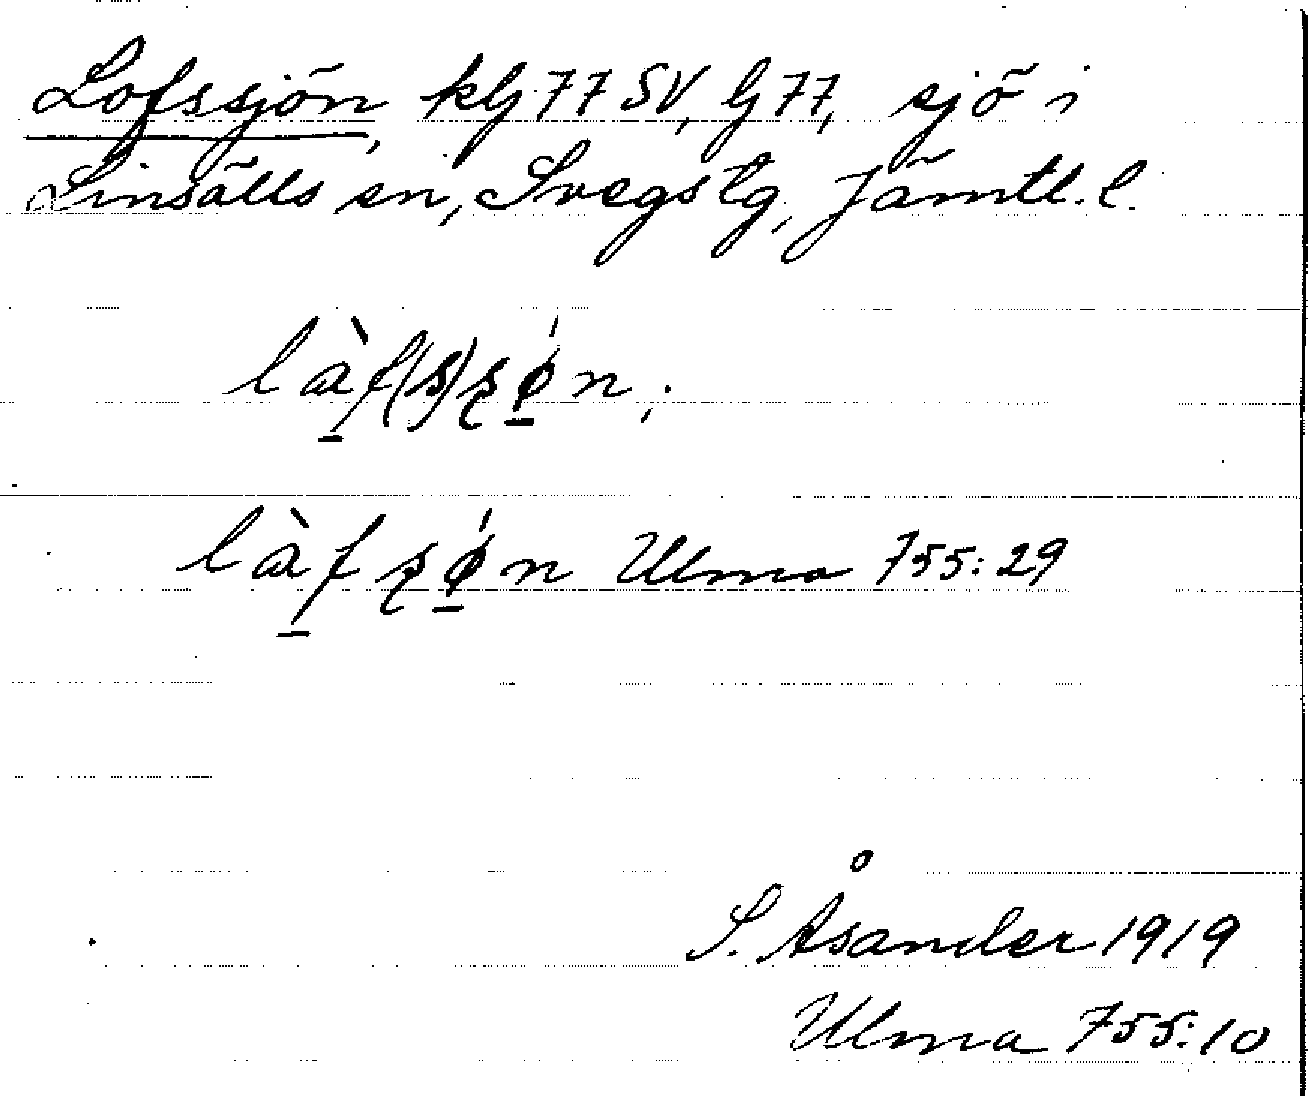 Lofssjön, kbj 77 SV, bj 77, sjö i
Linsälls sn, Svegs tg, Jämtl. l.
là̱f(s)ʂǿ̱n,.
là̱fʂǿ̱n Ulma 755:29
S. Åsander 1919
Ulma 755:10